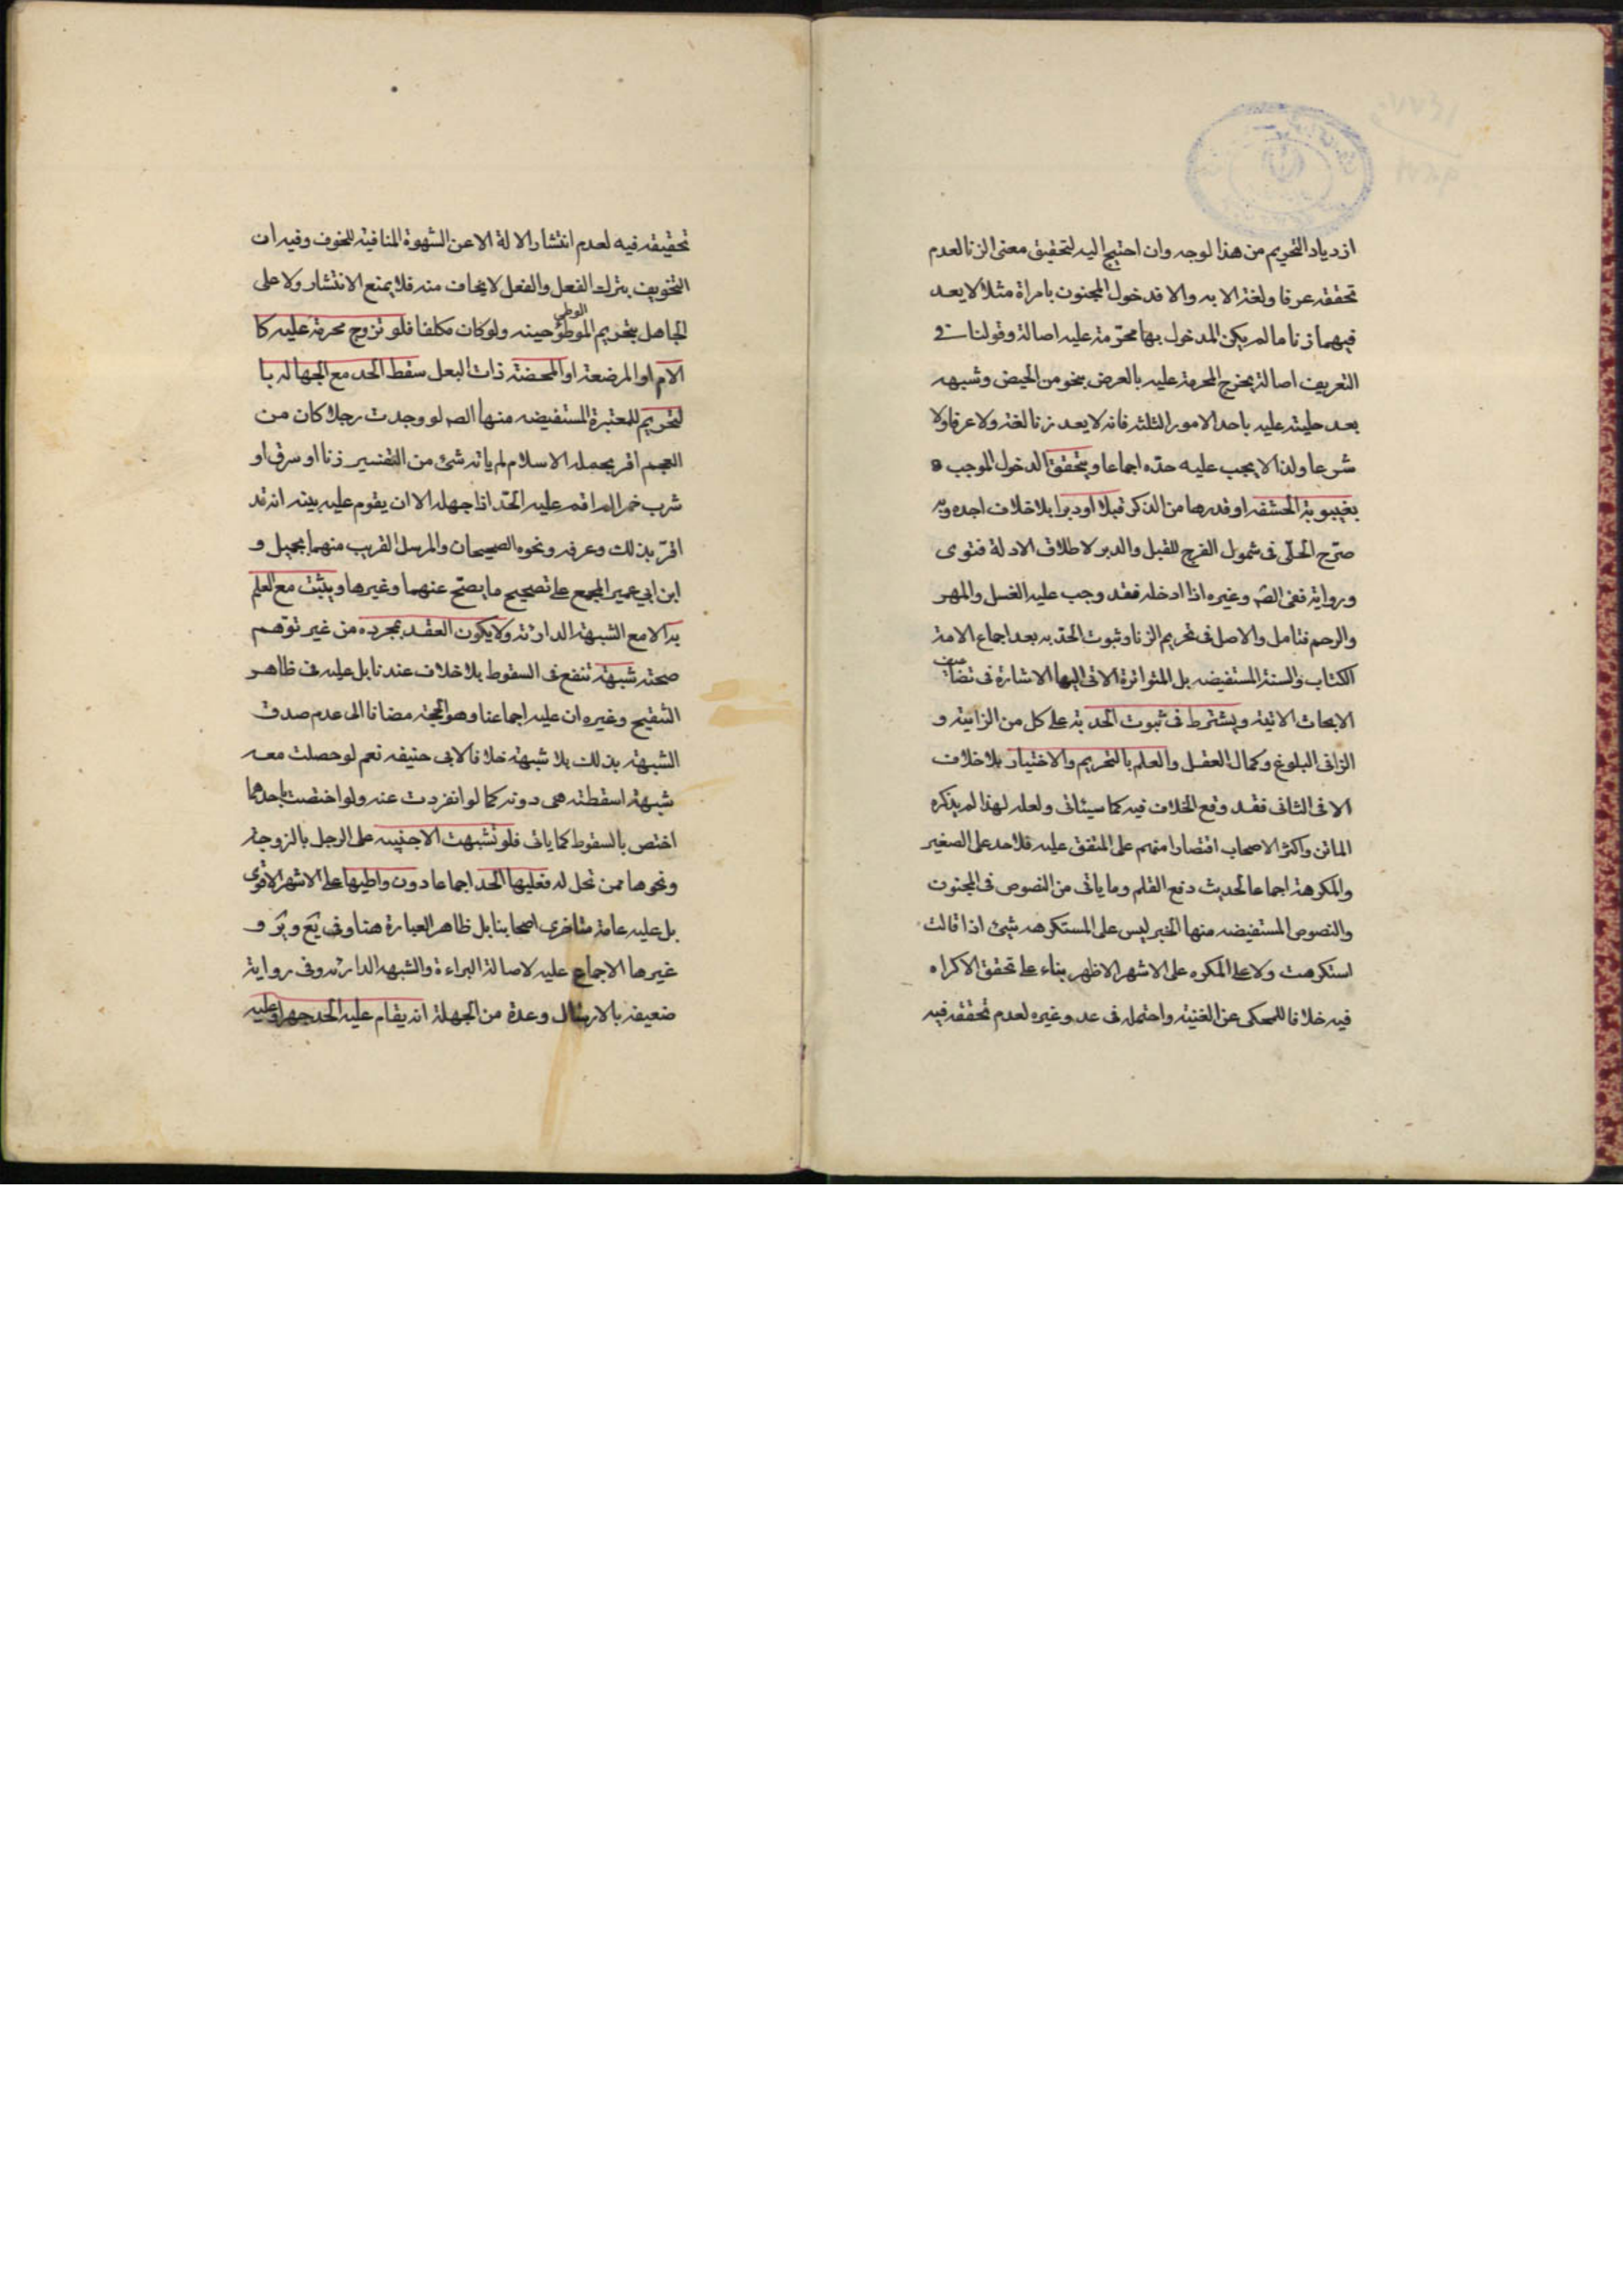 ازدياد التحريم من هذا لوجه وان احتيج اليه لتحقيق معنى الزنا لعدم
تحققه عرفا ولغة الا به والا فدخول المجنون بامراة مثلا لا يعد
فيهما زنا ما لم يكن المدخول بها محرّمة عليه اصالة وقولنا في
التعريف اصالة يخرج المحرمة عليه بالعرض بنحو من الحيض وشبهه
بعد حليته عليه باحد الامور الثلثة فانه لا يعد زنا لغة ولا عرفا ولا
شرعا ولذا لا يجب عليه حدّه اجماعا ويتحقق الدخول الموجب ه
بغيبوبة الحشفه او قدرها من الذكر قبلا او دبرا بلا خلاف اجده وبه
صرّح الحلّى فى شمول الفرج للقبل والدبر لاطلاق الادلة فتوى
ورواية ففى الصّ وغيره اذا ادخله فقد وجب عليه الغسل والمهر
والرجم فتامل والاصل فى تحريم الزنا وثبوت الحدّ به بعد اجماع الامة
الكتاب والسنة المستفيضه بل المتواترة الاتى اليها الاشارة فى تضاعيف
الابحاث الاتية ويشترط فى ثبوت الحد به على كل من الزانية و
الزانى البلوغ وكمال العقل والعلم بالتحريم والاختيار بلا خلاف
الا فى الثانى فقد وقع الخلاف فيه كما سيئاتى ولعله لهذا لم يذكره
الماتن واكثر الاصحاب اقتصارا منهم على المتفق عليه فلا حد على الصغير
والمكرهة اجماعا لحديث دفع القلم وما ياتى من النصوص فى المجنون
والنصوص المستفيضه منها الخبر ليس على المستكرهه شيئ اذا قالت
استكرهت ولا على المكره على الاشهر الاظهر بناء على تحقق الاكراه
فيه خلافا للمحكى عن الغنية واحتمله فى عد وغيره لعدم تحققه فيه
تحقيقه فيه لعدم انتشار الالة الا عن الشهوة المنافية للخوف وفيه ان
التخويف بترك الفعل والفعل لا يخاف منه فلا يمنع الانتشار ولا على
الجاهل بتحريم الموطؤ الوطى حينه ولو كان مكلفا فلو تزوج محرمة عليه كا
الام او المرضعة او المحصنة ذات البعل سقط الحد مع الجهالة با
لتحريم للمعتبرة المستفيضه منها الصه لو وجدت رجلا كان من
العجم اقر بجملة الاسلام لم ياته شئ من التفسير زنا او سرق او
شرب خمر الم اقم عليه الحدّ اذا جهله الا ان يقوم عليه بينه انه قد
اقرّ بذلك وعرفه ونحوه الصحيحان والمرسل القريب منهما بجميل و
ابن ابي عمير المجمع على تصحيح ما يصحّ عنهما وغيرها ويثبت مع العلم
به الا مع الشبهة الدارئة ولا يكون العقد بمجرده من غير توهم
صحته شبهة تنفع فى السقوط بلا خلاف عندنا بل عليه فى ظاهر
التنقيح وغيره ان عليه اجماعنا وهو الحجة مضافا الى عدم صدق
الشبهة بذلك بلا شبهة خلافا لابى حنيفه نعم لو حصلت معه
شبهة اسقطته هى دونه كما لو انفردت عنه ولو اختصت باحدهما
اختص بالسقوط كما ياتى فلو تشبهت الاجنبيه على الرجل بالزوجة
ونحوها ممن تحل له فعليها الحد اجماعا دون واطيها على الاشهر الاقوى
بل عليه عامة متاخرى اصحابنا بل ظاهر العبارة هنا وفى يَع ويَر و
غيرها الاجماع عليه لاصالة البراءة والشبهه الدارئه وفى رواية
ضعيفه بالارسال وعدة من الجهلة انه يقام عليه الحد جهرا وعليه